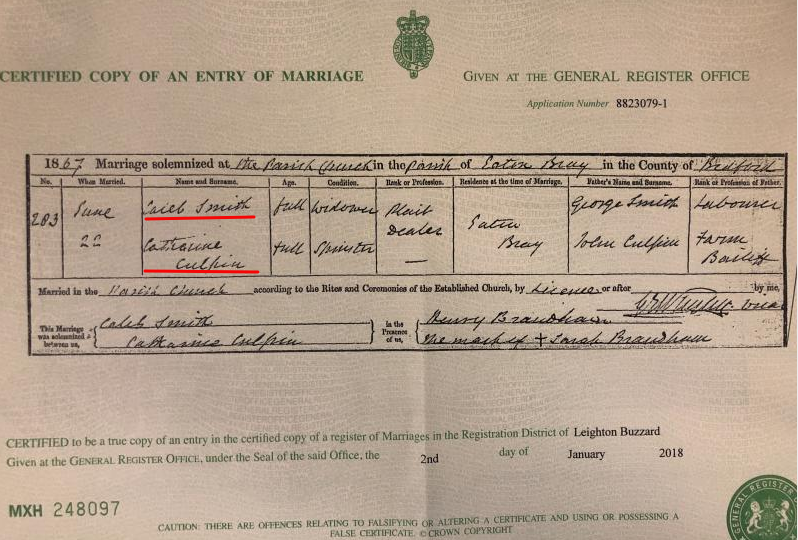 CERTIFIED COPY OF AN ENTRY OF MARRIAGE
GIVEN AT THE GENERAL REGISTER OFFICE
Application Number 8823079-1
1867 Marriage solemnized at the Parish Church in the Parish of Eaton Bray in the County of Bedford
No. When Married. Name and Surname. Age. Condition. Rank or Profession. Residence at the time of Marriage. Father's Name and Surname. Rank or Profession of Father.
283 June Caleb Smith full Widower Plait Dealer Eaton George Smith Labourer
22 Catharine Culpin full Spinster — Bray John Culpin Farm Bailiff
Married in the Parish Church according to the Rites and Ceremonies of the Established Church, by Licence or after by me,
Vicar
This Marriage was solemnized between us, Caleb Smith in the Presence of us, Henry Brandham
Catharine Culpin The mark of + Sarah Brandham
CERTIFIED to be a true copy of an entry in the certified copy of a register of Marriages in the Registration District of Leighton Buzzard
Given at the GENERAL REGISTER OFFICE, under the Seal of the said Office, the 2nd day of January 2018
MXH 248097
CAUTION: THERE ARE OFFENCES RELATING TO FALSIFYING OR ALTERING A CERTIFICATE AND USING OR POSSESSING A
FALSE CERTIFICATE © CROWN COPYRIGHT
GENERAL REGISTER